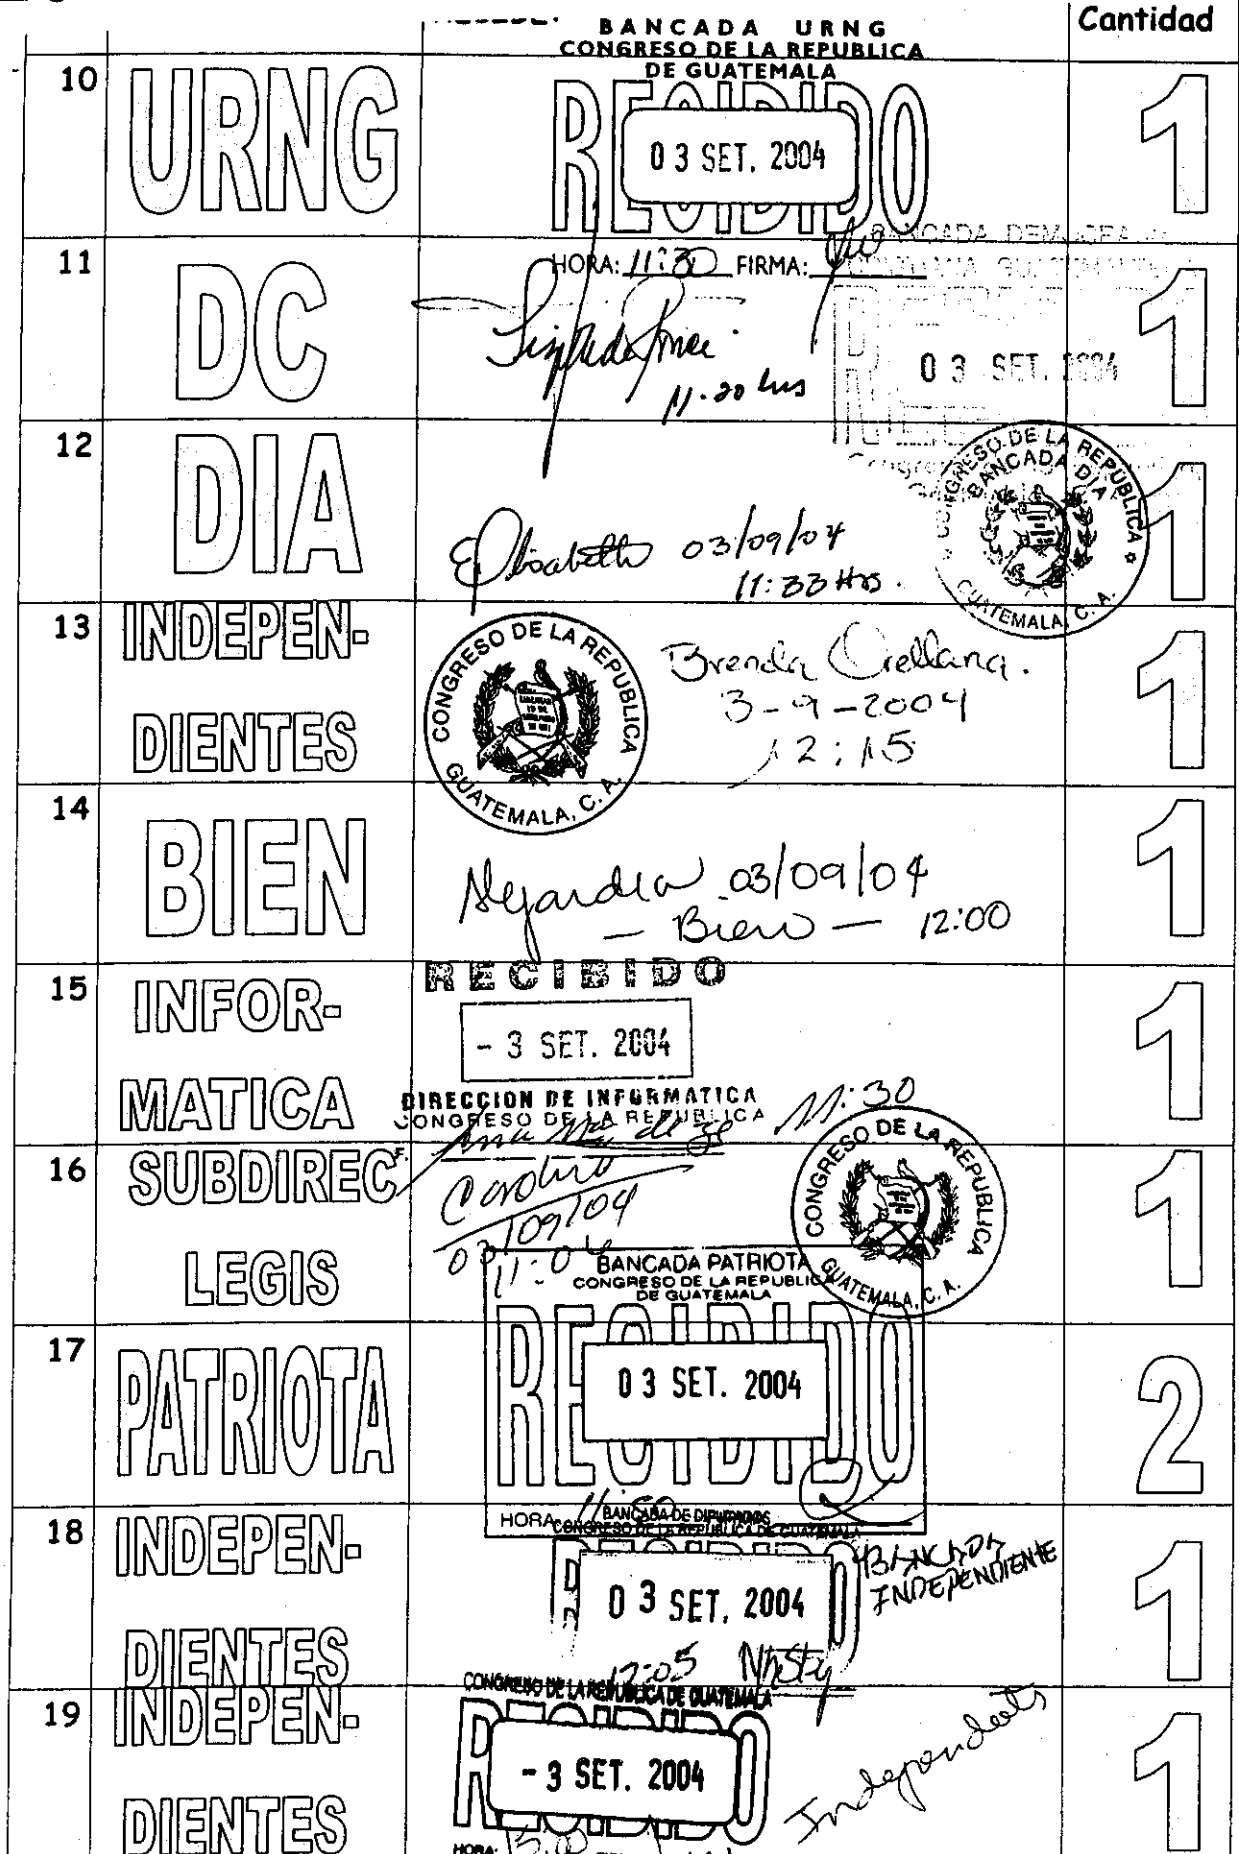 Cantidad
BANCADA URNG
CONGRESO DE LA REPUBLICA
DE GUATEMALA
10
URNG
RECIBIDO
03 SET. 2004
1
HORA: 11:30 FIRMA:
11
DC
11.20 hrs
BANCADA DEMOCRA
03 SET. 2004
1
12
DIA
Elisabeth 03/09/04
11:33 Hrs.
CONGRESO DE LA REPUBLICA
BANCADA DIA
GUATEMALA, C. A.
1
13
INDEPEN-
DIENTES
CONGRESO DE LA REPUBLICA
GUATEMALA, C. A.
Brenda Orellana.
3-9-2004
12:15
1
14
BIEN
Alejandra 03/09/04
- Bien - 12:00
1
15
INFOR-
MATICA
RECIBIDO
- 3 SET. 2004
DIRECCION DE INFORMATICA
CONGRESO DE LA REPUBLICA
11:30
1
16
SUBDIREC
LEGIS
F.
03/09/04
11:04
CONGRESO DE LA REPUBLICA
GUATEMALA, C. A.
1
17
PATRIOTA
BANCADA PATRIOTA
CONGRESO DE LA REPUBLICA
DE GUATEMALA
RECIBIDO
03 SET. 2004
HORA: 11:50
2
18
INDEPEN-
DIENTES
BANCADA DE DIPUTADOS
CONGRESO DE LA REPUBLICA DE GUATEMALA
RECIBIDO
03 SET. 2004
BANCADA
INDEPENDIENTE
12:05
1
19
INDEPEN-
DIENTES
CONGRESO DE LA REPUBLICA DE GUATEMALA
RECIBIDO
- 3 SET. 2004
HORA: 15:00
1